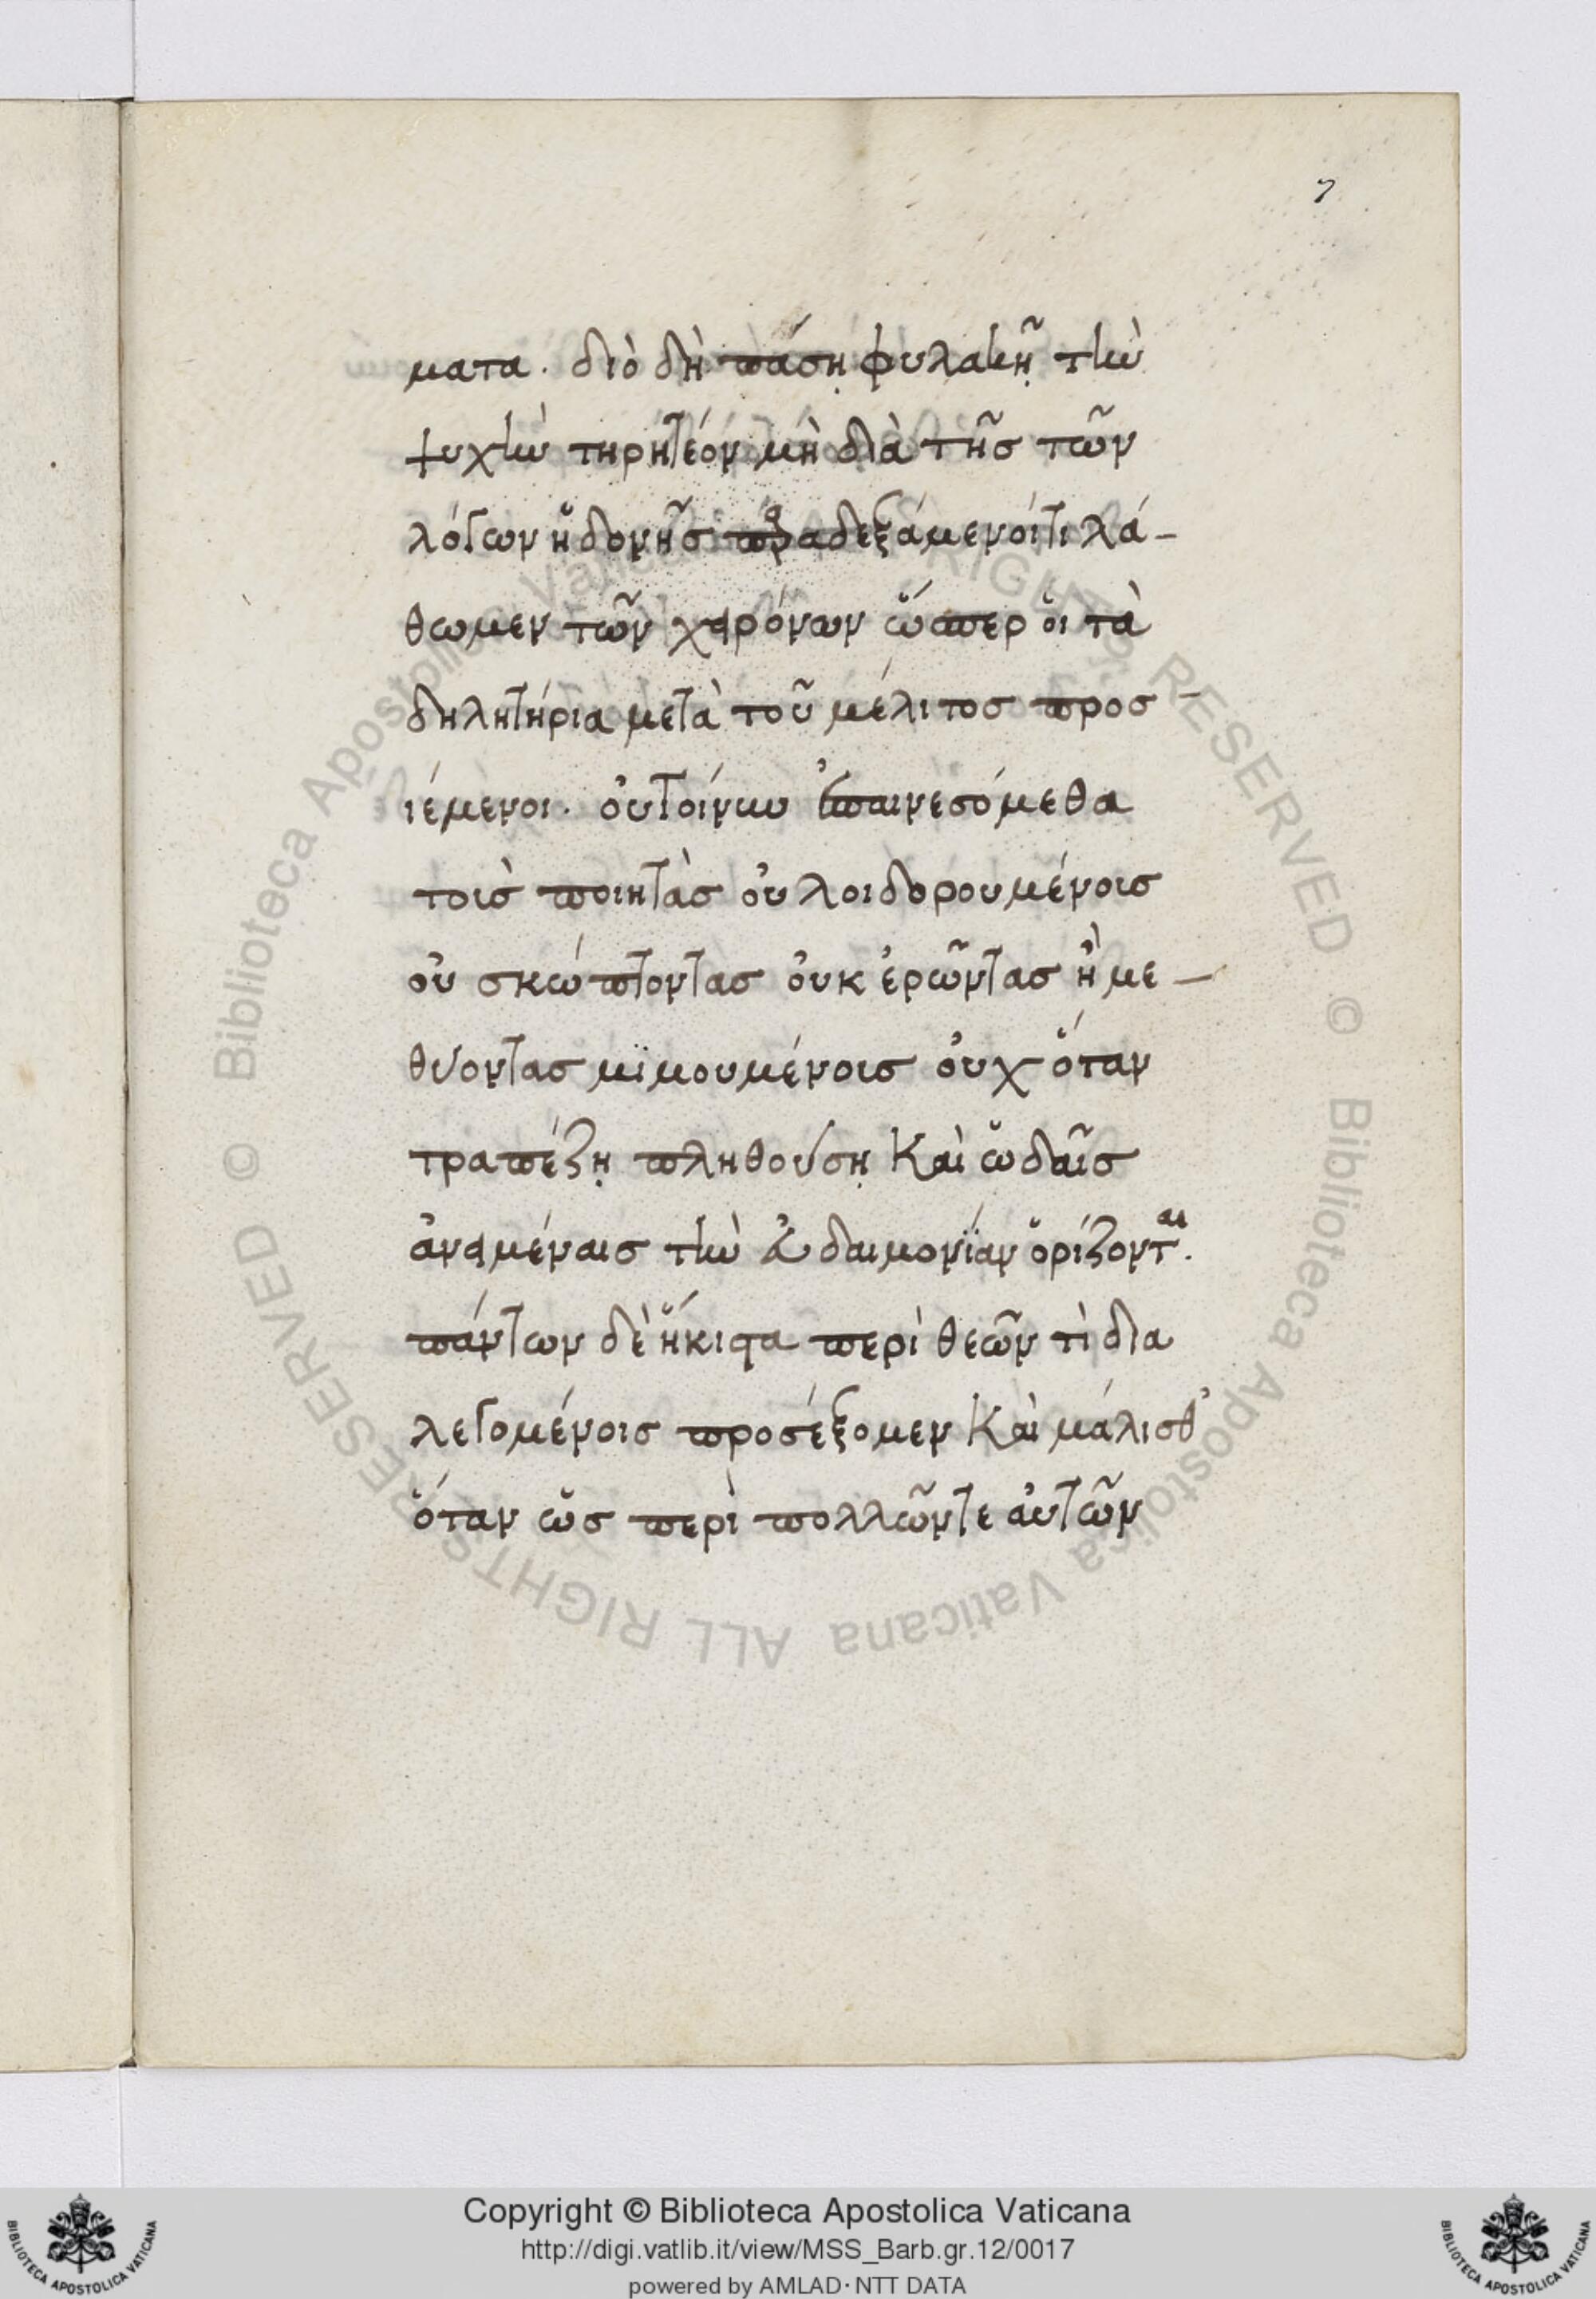 7
ματα. διὸ δὴ πάσῃ φυλακῇ τὴν
ψυχὴν τηρητέον μὴ διὰ τῆς τῶν
λόγων ἡδονῆς παραδεξάμενοί τι λά-
θωμεν τῶν χειρόνων ὥσπερ οἱ τὰ
δηλητήρια μετὰ τοῦ μέλιτος προσ-
ιέμενοι. οὐ τοίνυν ἐπαινεσόμεθα
τοὺς ποιητὰς οὐ λοιδορουμένους
οὐ σκώπτοντας οὐκ ἐρῶντας ἢ με-
θύοντας μϊμουμένους οὐχ ὅταν
τραπέζῃ πληθούσῃ καὶ ὠδαῖς
ἀνειμέναις τὴν εὐδαιμονίαν ὁρίζονται.
πάντων δὲ ἥκιστα περὶ θεῶν τὶ δια
λεγομένοις προσέξομεν καὶ μάλισθ'
ὅταν ὡς περὶ πολλῶν τε αὐτῶν
Biblioteca Apostolica Vaticana ALL RIGHTS RESERVED © Biblioteca Apostolica Vaticana ALL RIGHTS RESERVED ©
Copyright © Biblioteca Apostolica Vaticana
http://digi.vatlib.it/view/MSS_Barb.gr.12/0017
powered by AMLAD·NTT DATA
BIBLIOTECA APOSTOLICA VATICANA
BIBLIOTECA APOSTOLICA VATICANA